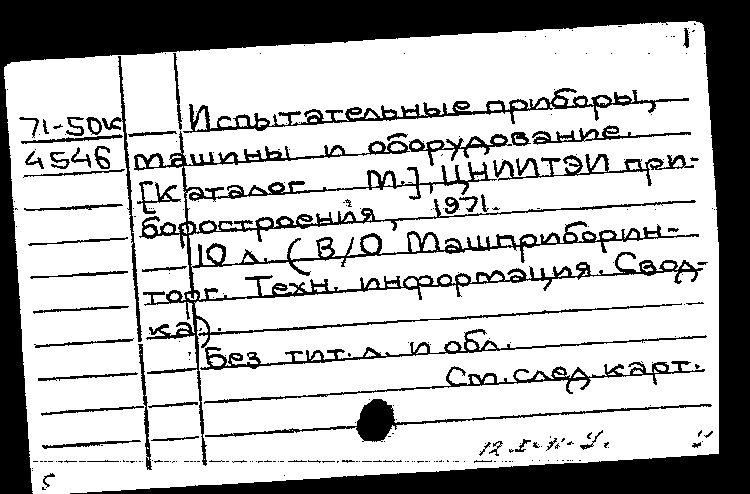 71-50к Испытательные приборы,
4546 машины и оборудование.
[Каталог. М.], ЦНИИТЭИ при-
боростроения, 1971.
10 л. (В/О Машприборин-
торг. Техн. информация. Свод-
ка).
Без тит. л. и обл.
См. след. карт.